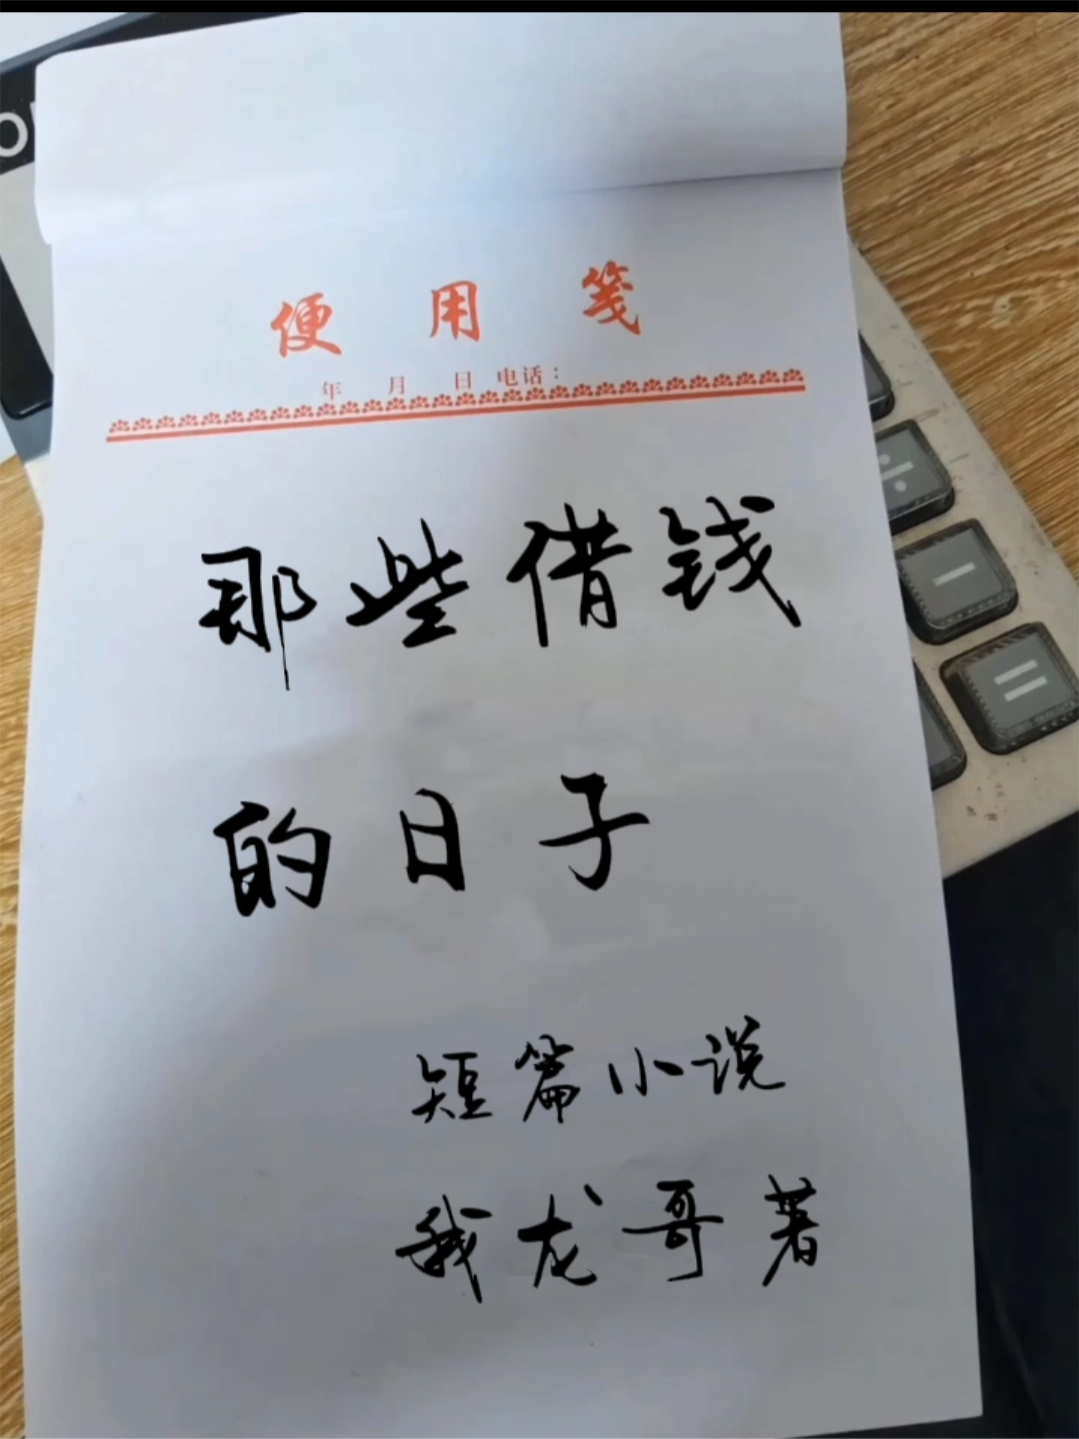 便用笺
年 月 日 电话：
那些借钱
的日子
短篇小说
我龙哥著
÷
−
=